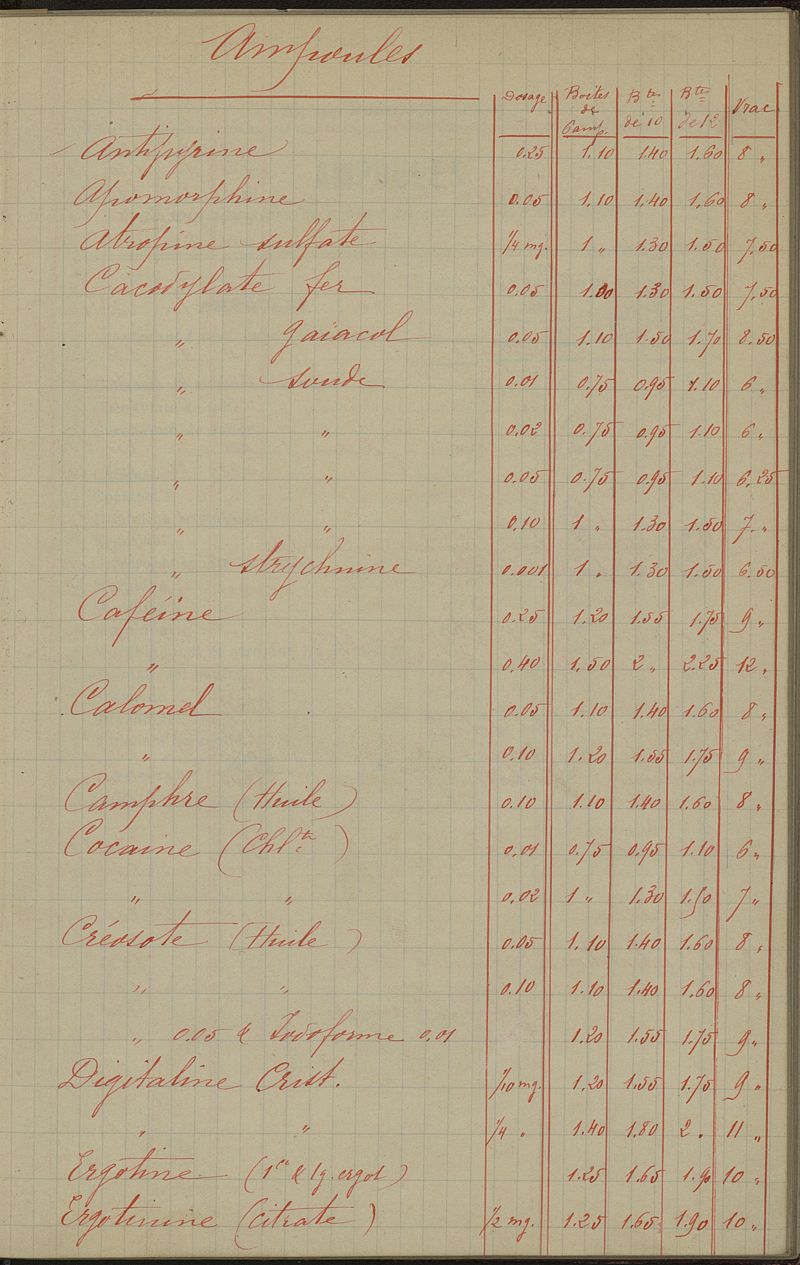 Ampoules
Dosage Boîtes de 6 amp. Bte de 10 Bte de 12 Vrac
Antipyrine 0.25 1.10 1.40 1.60 8 "
Apomorphine 0.05 1.10 1.40 1.60 8 "
Atropine sulfate 1/4 mg. 1 " 1.30 1.50 7.50
Cacodylate fer 0.05 1.00 1.30 1.50 7.50
" gaïacol 0.05 1.10 1.50 1.70 8.50
" soude 0.01 0.75 0.95 1.10 6 "
" " 0.02 0.75 0.95 1.10 6 "
" " 0.05 0.75 0.95 1.10 6.25
" " 0.10 1 " 1.30 1.50 7. "
" strychnine 0.001 1 " 1.30 1.50 6.50
Caféïne 0.25 1.20 1.55 1.75 9 "
" 0.40 1.50 2 " 2.25 12 "
Calomel 0.05 1.10 1.40 1.60 8 "
" 0.10 1.20 1.55 1.75 9 "
Camphre (Huile) 0.10 1.10 1.40 1.60 8 "
Cocaine (Chlte) 0.01 0.75 0.95 1.10 6 "
" " 0.02 1 " 1.30 1.50 7 "
Créosote (Huile) 0.05 1.10 1.40 1.60 8 "
" " 0.10 1.10 1.40 1.60 8 "
" 0.05 & Iodoforme 0.01 1.20 1.55 1.75 9 "
Digitaline Crist. 1/10 mg. 1.20 1.55 1.75 9 "
" " 1/4 " 1.40 1.80 2 " 11 "
Ergotine (1cc & 1g. ergot) 1.25 1.65 1.90 10 "
Ergotinine (citrate) 1/2 mg. 1.25 1.65 1.90 10 "